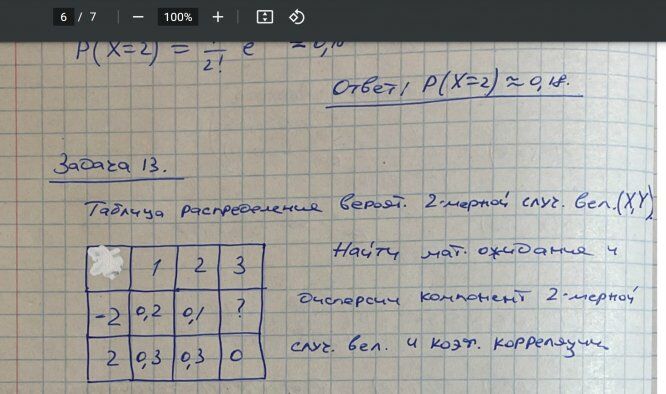 6 / 7 — 100% +
P(X=2) = — e ≈ 0,18
2!
Ответ: P(X=2) ≈ 0,18.
Задача 13.
Таблица распределения вероят. 2-мерной случ. вел.(X,Y)
Найти мат. ожидания и
дисперсии компонент 2-мерной
случ. вел. и коэф. корреляции
1 2 3
-2 0,2 0,1 ?
2 0,3 0,3 0